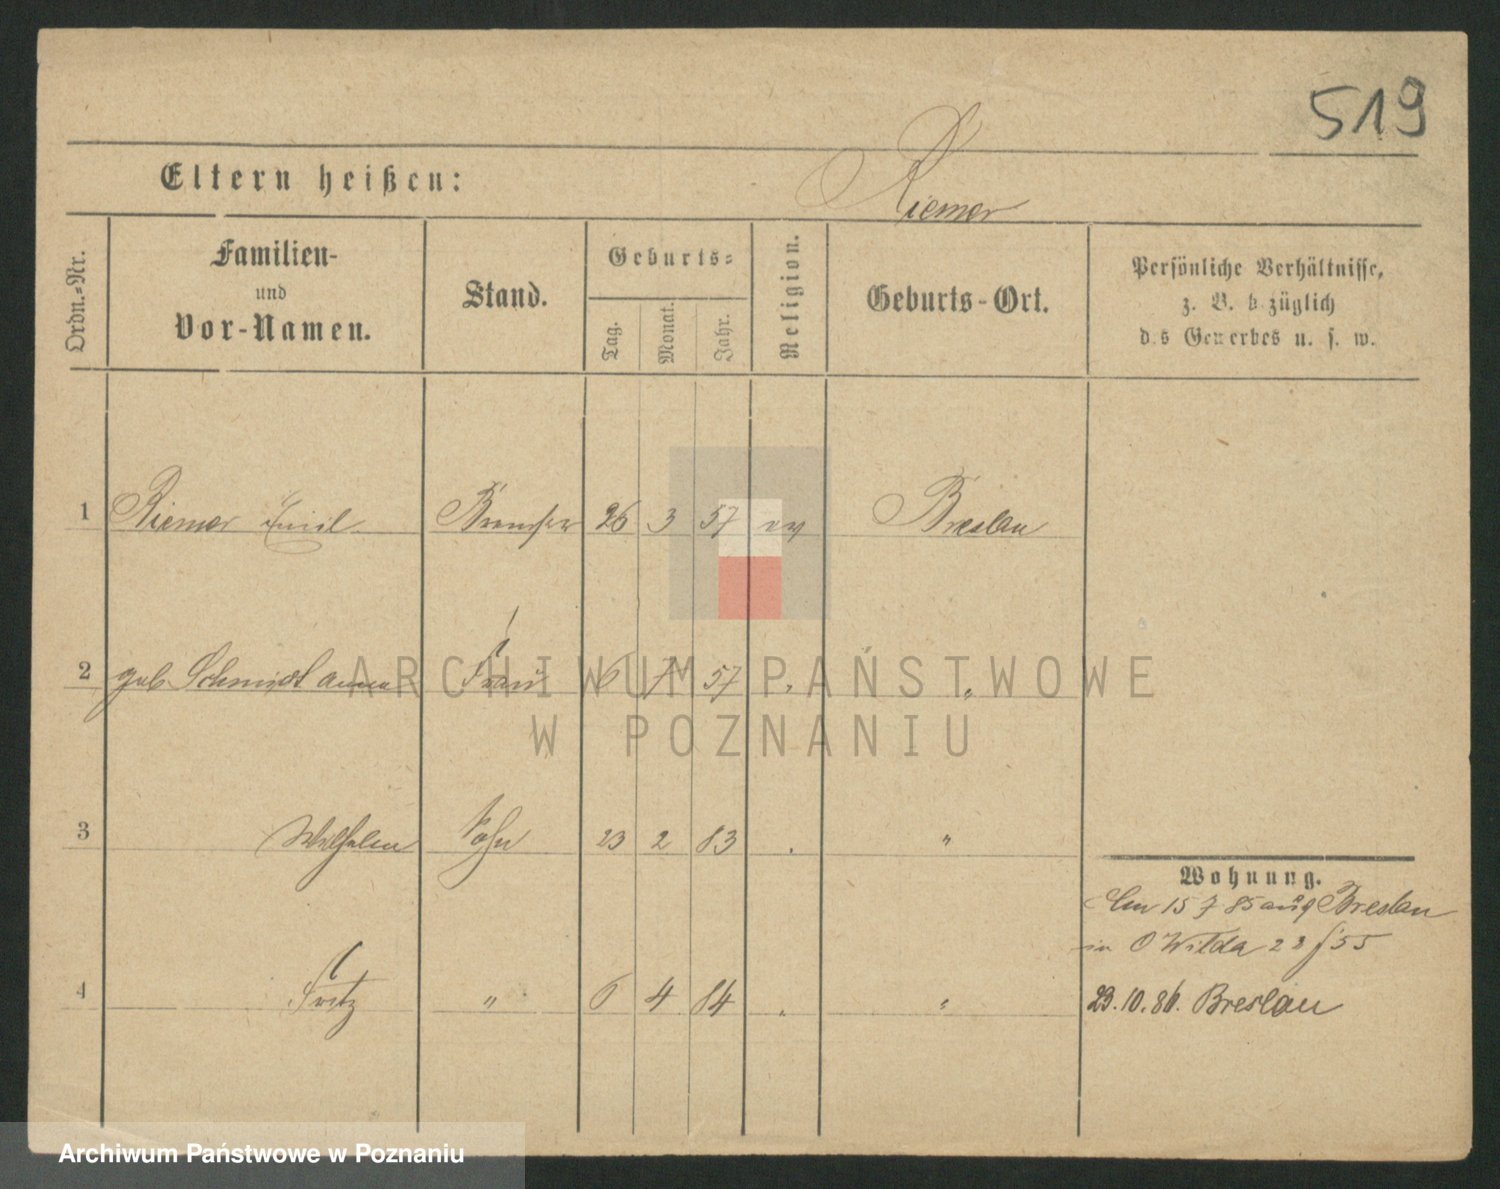 519
Eltern heißen: Riemer
Ordn.=Nr.
Familien-
und
Vor-Namen.
Stand.
Geburts=
Tag.
Monat.
Jahr.
Religion.
Geburts-Ort.
Persönliche Verhältnisse,
z. B. b züglich
d s Gewerbes u. s. w.
1 Riemer Emil Bremser 26 3 57 ev Breslau
2 geb Schmidt Anna Frau 6 7 57 " "
3 Wilhelm Sohn 23 2 83 " "
4 Fritz " 6 4 84 " "
Wohnung.
Am 15 7 85 aus Breslau
in O Wilda 28 f 55
23.10.86. Breslau
ARCHIWUM PAŃSTWOWE
W POZNANIU
Archiwum Państwowe w Poznaniu